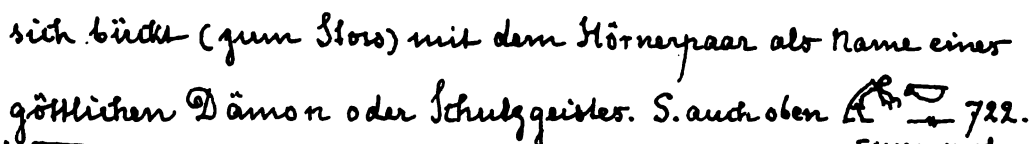 sich bückt (zum Stoss) mit dem Hörnerpaar als Name eines
göttlichen Dämon oder Schutzgeistes. S. auch oben 722.